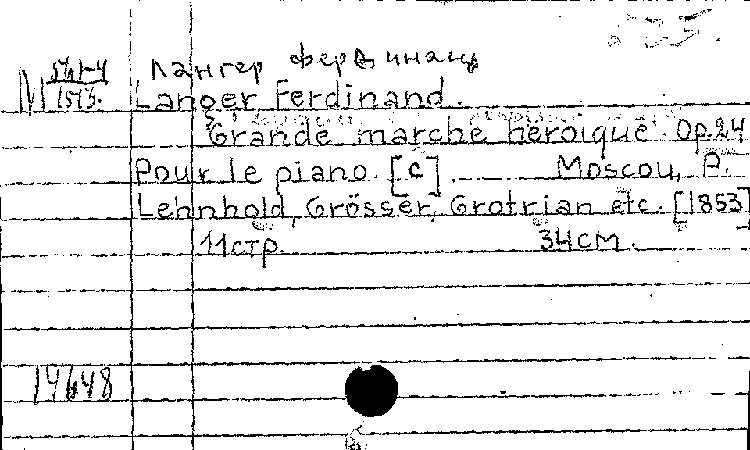 Лангер Фердинанд
M 561-4
1513.
Langer Ferdinand.
Grande marche héroique. Op.24
Pour le piano. [C]. Moscou, P.
Lehnhold, Grösser, Grotrian etc. [1853]
11 стр. 34 см.
19648